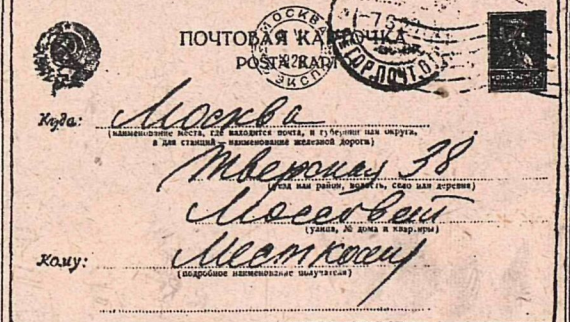 ПОЧТОВАЯ КАРТОЧКА
POŜTA KARTO
МОСКВА
ЭКСП
ГОР.ПОЧТ.
Куда: Москва
(наименование места, где находится почта, и губернии или округа,
а для станций – наименование железной дороги)
Тверская 38
(уезд или район, волость, село или деревня)
Моссовет
(улица, № дома и квартиры)
Кому: Местком
(подробное наименование получателя)